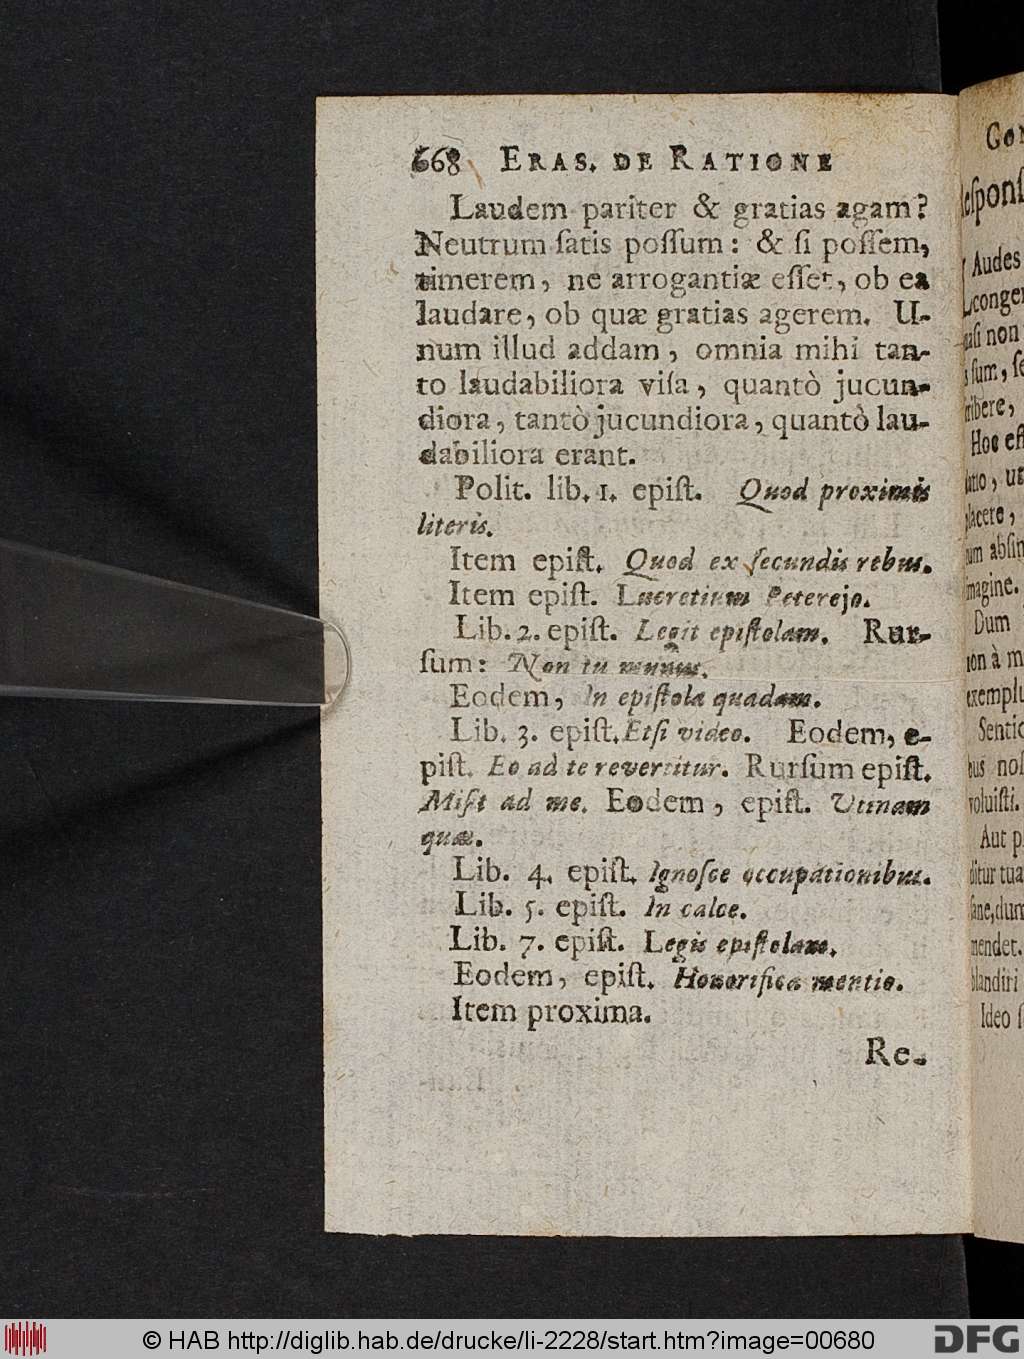 668 ERAS. DE RATIONE
Laudem pariter & gratias agam?
Neutrum ſatis poſſum: & ſi poſſem,
timerem, ne arrogantiæ eſſet, ob ea
laudare, ob quæ gratias agerem. U-
num illud addam, omnia mihi tan-
to laudabiliora viſa, quantò jucun-
diora, tantò jucundiora, quantò lau-
dabiliora erant.
Polit. lib. 1. epiſt. Quod proximis
literis.
Item epiſt. Quod ex ſecundis rebus.
Item epiſt. Lucretium Peterejo.
Lib. 2. epiſt. Legit epiſtolam. Rur-
ſum: Non tu munus.
Eodem, In epiſtola quadam.
Lib. 3. epiſt. Etſi video. Eodem, e-
piſt. Eo ad te revertitur. Rurſum epiſt.
Miſit ad me. Eodem, epiſt. Utinam
quæ.
Lib. 4. epiſt. Ignoſce occupationibus.
Lib. 5. epiſt. In calce.
Lib. 7. epiſt. Legis epiſtolam.
Eodem, epiſt. Honorifica mentio.
Item proxima.
Re-
Audes
non
ſum, ſe
Hoc eſt
placere,
imagine.
Dum
non à m
exemplu
bus noſ
voluiſti.
Aut p
ditur tua
ſane, dum
mendet.
blandiri
Ideo ſ
© HAB http://diglib.hab.de/drucke/li-2228/start.htm?image=00680
DFG